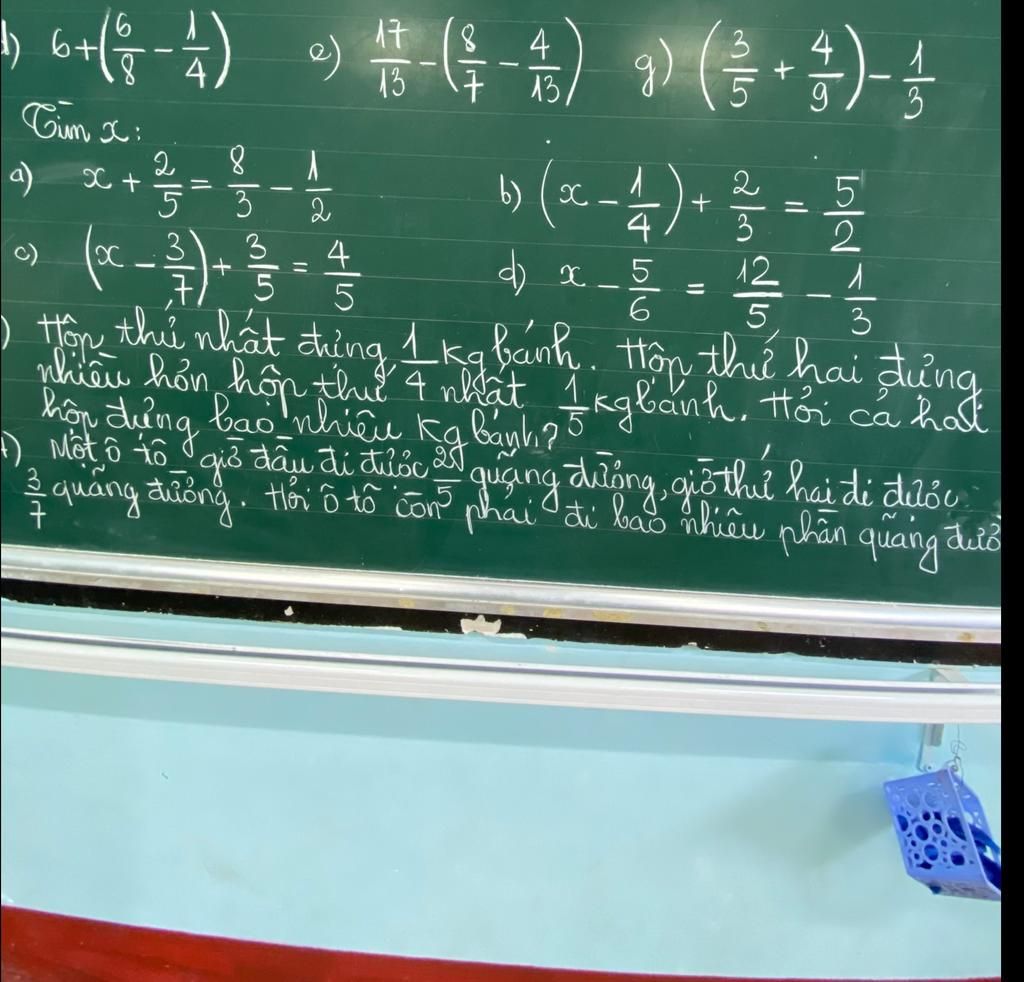 d) 6+(6/8 - 1/4) e) 17/13 - (8/7 - 4/13) g) (3/5 + 4/9) - 1/3
Tìm x:
a) x + 2/5 = 8/3 - 1/2 b) (x - 1/4) + 2/3 = 5/2
c) (x - 3/7) + 3/5 = 4/5 d) x - 5/6 = 12/5 - 1/3
) Hộp thứ nhất đựng 1/4 kg bánh. Hộp thứ hai đựng
nhiều hơn hộp thứ nhất 1/5 kg bánh. Hỏi cả hai
hộp đựng bao nhiêu kg bánh?
) Một ô tô giờ đầu đi được 2/5 quãng đường, giờ thứ hai đi được
3/7 quãng đường. Hỏi ô tô còn phải đi bao nhiêu phần quãng đườ